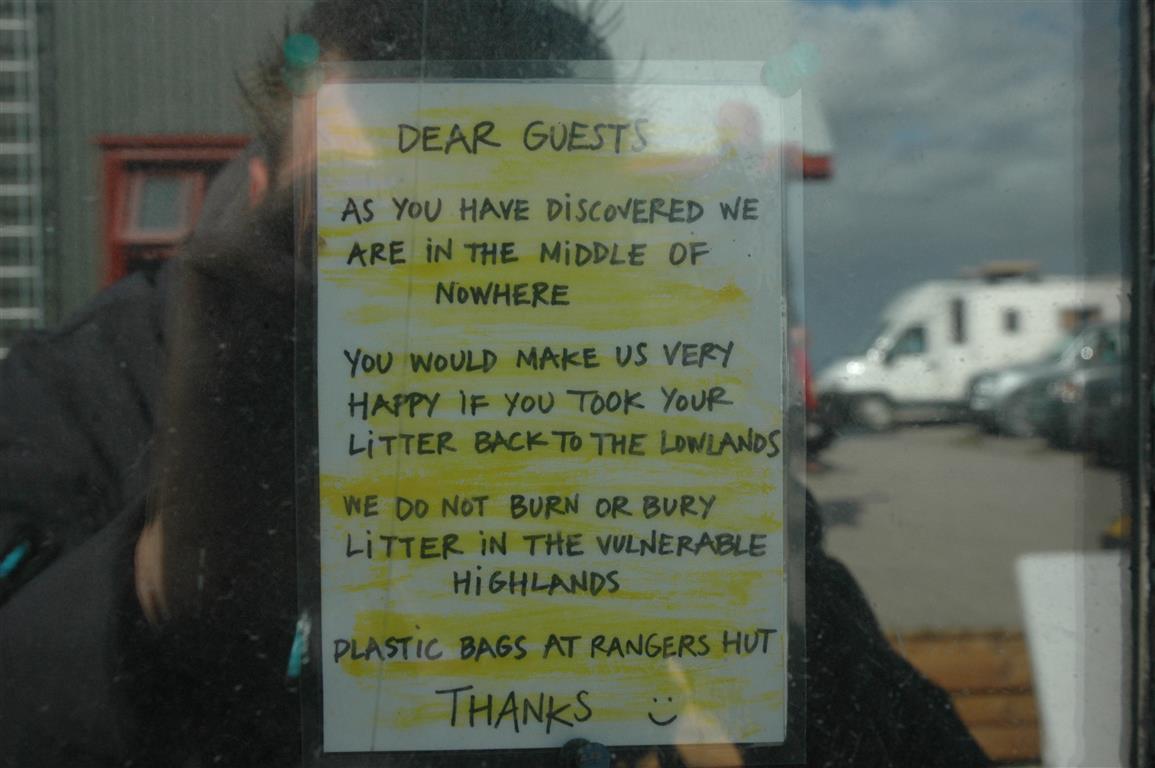 DEAR GUESTS
AS YOU HAVE DISCOVERED WE
ARE IN THE MIDDLE OF
NOWHERE
YOU WOULD MAKE US VERY
HAPPY IF YOU TOOK YOUR
LITTER BACK TO THE LOWLANDS
WE DO NOT BURN OR BURY
LITTER IN THE VULNERABLE
HIGHLANDS
PLASTIC BAGS AT RANGERS HUT
THANKS :)